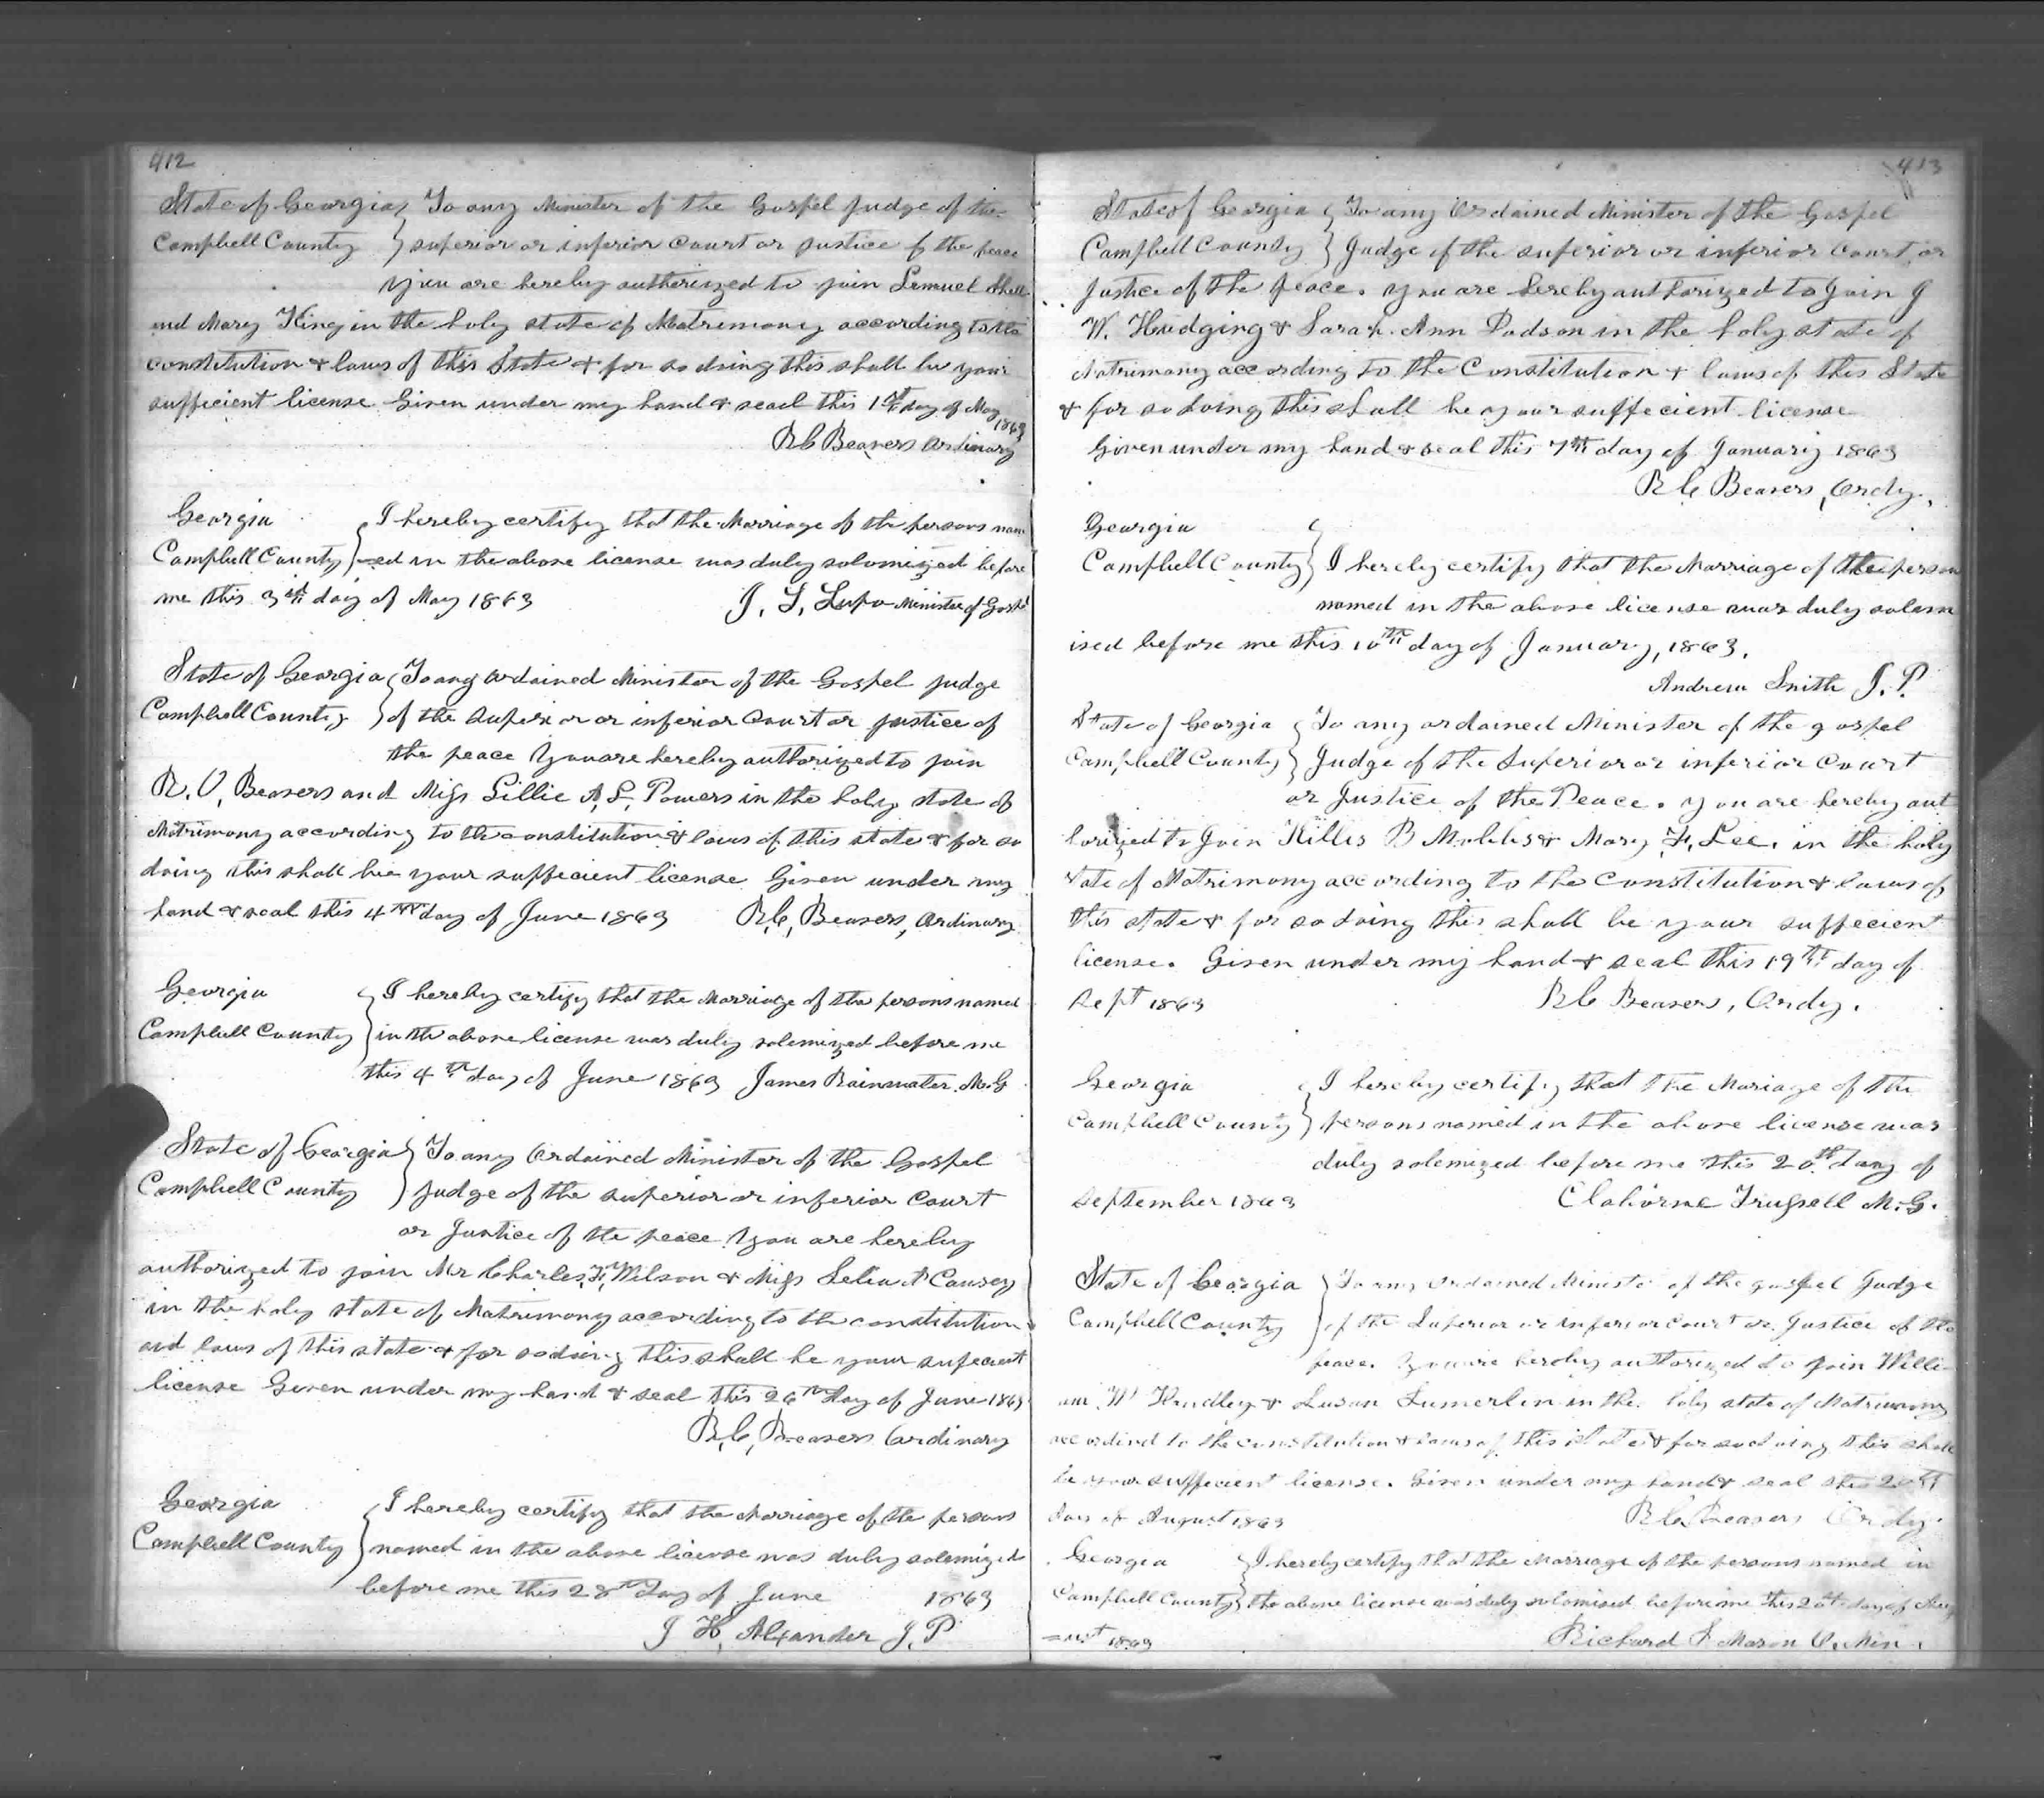 412
State of Georgia } To any Minister of the Gospel Judge of the
Campbell County } superior or inferior Court or justice of the peace
you are hereby authorized to join Lemuel Shell
and Mary King in the holy state of Matremony according to the
constitution & laws of this State & for so doing this shall be your
sufficient license Given under my hand & seal this 1st day of May
1863
R C Beavers Ordinary
Georgia } I hereby certify that the Marriage of the persons nam
Campbell County } –ed in the above license was duly solomized before
me this 3rd day of May 1863 J. T. Lupo Minister of Gospl
State of Georgia } To any Ordained Minister of the Gospel judge
Campbell County } of the Superior or inferior Court or justice of
the peace You are hereby authorized to join
R. O. Beavers and Miss Lillie A. L. Powers in the holy state of
Matrimony according to the constitution & laws of this state & for so
doing this shall be your suffecient license Given under my
hand & seal this 4th day of June 1863 R. C. Beavers, Ordinary
Georgia } I hereby certify that the Marriage of the persons named
Campbell County } in the above license was duly solemized before me
this 4th day of June 1863 James Rainwater M.G
State of Georgia } To any Ordained Minister of the Gospel
Campbell County } judge of the superior or inferior Court
or Justice of the peace You are hereby
authorized to join Mr Charles F. Wilson & Miss Lelia A Causey
in the holy state of Matrimony according to the constitution
and laws of this state & for so doing this shall be your sufecient
license Given under my hand & seal this 26th day of June 1863
R. C. Beavers Ordinary
Georgia } I hereby certify that the Marriage of the persons
Campbell County } named in the above license was duly solemized
before me this 28th day of June 1863
J H. Alexander J. P
413
State of Georgia } To any Ordained Minister of the Gospel
Campbell County } Judge of the superior or inferior Court, or
Justice of the peace. You are hereby authorized to Join J
W. Hudging & Sarah Ann Dodson in the holy state of
Matrimony according to the Constitution & laws of this State
& for so doing this shall be your suffecient license
Given under my hand & seal this 7th day of January 1863
R C Beavers, Ordy.
Georgia }
Campbell County } I hereby certify that the Marriage of the person
named in the above license was duly solem
ised before me this 10th day of January, 1863.
Andrew Smith J. P.
State of Georgia } To any ordained Minister of the gospel
Campbell County } Judge of the Superior or inferior Court
or Justice of the Peace. You are hereby aut
horized to Join Killis B & Mary F. Lee. in the holy
state of Matrimony according to the Constitution & laws of
this state & for so doing this shall be your suffecient
license. Given under my hand & seal this 19th day of
Sept 1863 R C Beavers, Ordy.
Georgia } I hereby certify that the Mariage of the
Campbell County } persons named in the above license was
duly solemized before me this 20th day of
September 1863 Claborne Trussell M.G.
State of Georgia } To any Ordained Ministe of the gospel Judge
Campbell County } of the Superior or inferior court or Justice of the
peace. You are hereby authorized to join Willi
am W Hindley & Susan Sumerlin in the holy state of Matrimony
accordind to the constitution & laws of this state & for so doing this shall
be your sufficient license. Given under my hand & seal this 20th
day of August 1863 R C Beavers Ordy.
Georgia } I hereby certify that the Marriage of the persons named in
Campbell County } the above license was duly solomised before me this 20th day of Aug
ust 1863 Richard F Mason O. Min.